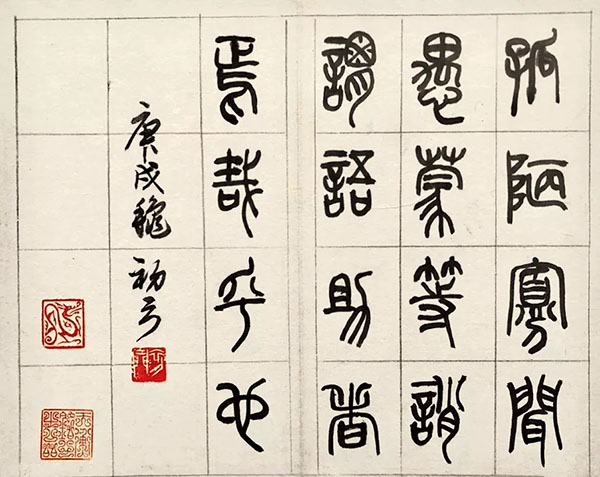 孤陋寡聞
愚蒙等誚
謂語助者
焉哉乎也
庚戌穐